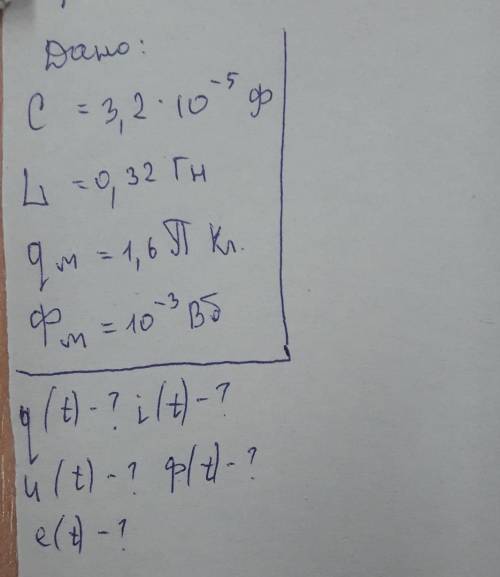 Дано:
C = 3,2 · 10⁻⁵ Ф
L = 0,32 Гн
qм = 1,6 П Кл.
Фм = 10⁻³ Вб
q(t) - ? i(t) - ?
u(t) - ? Ф(t) - ?
e(t) - ?